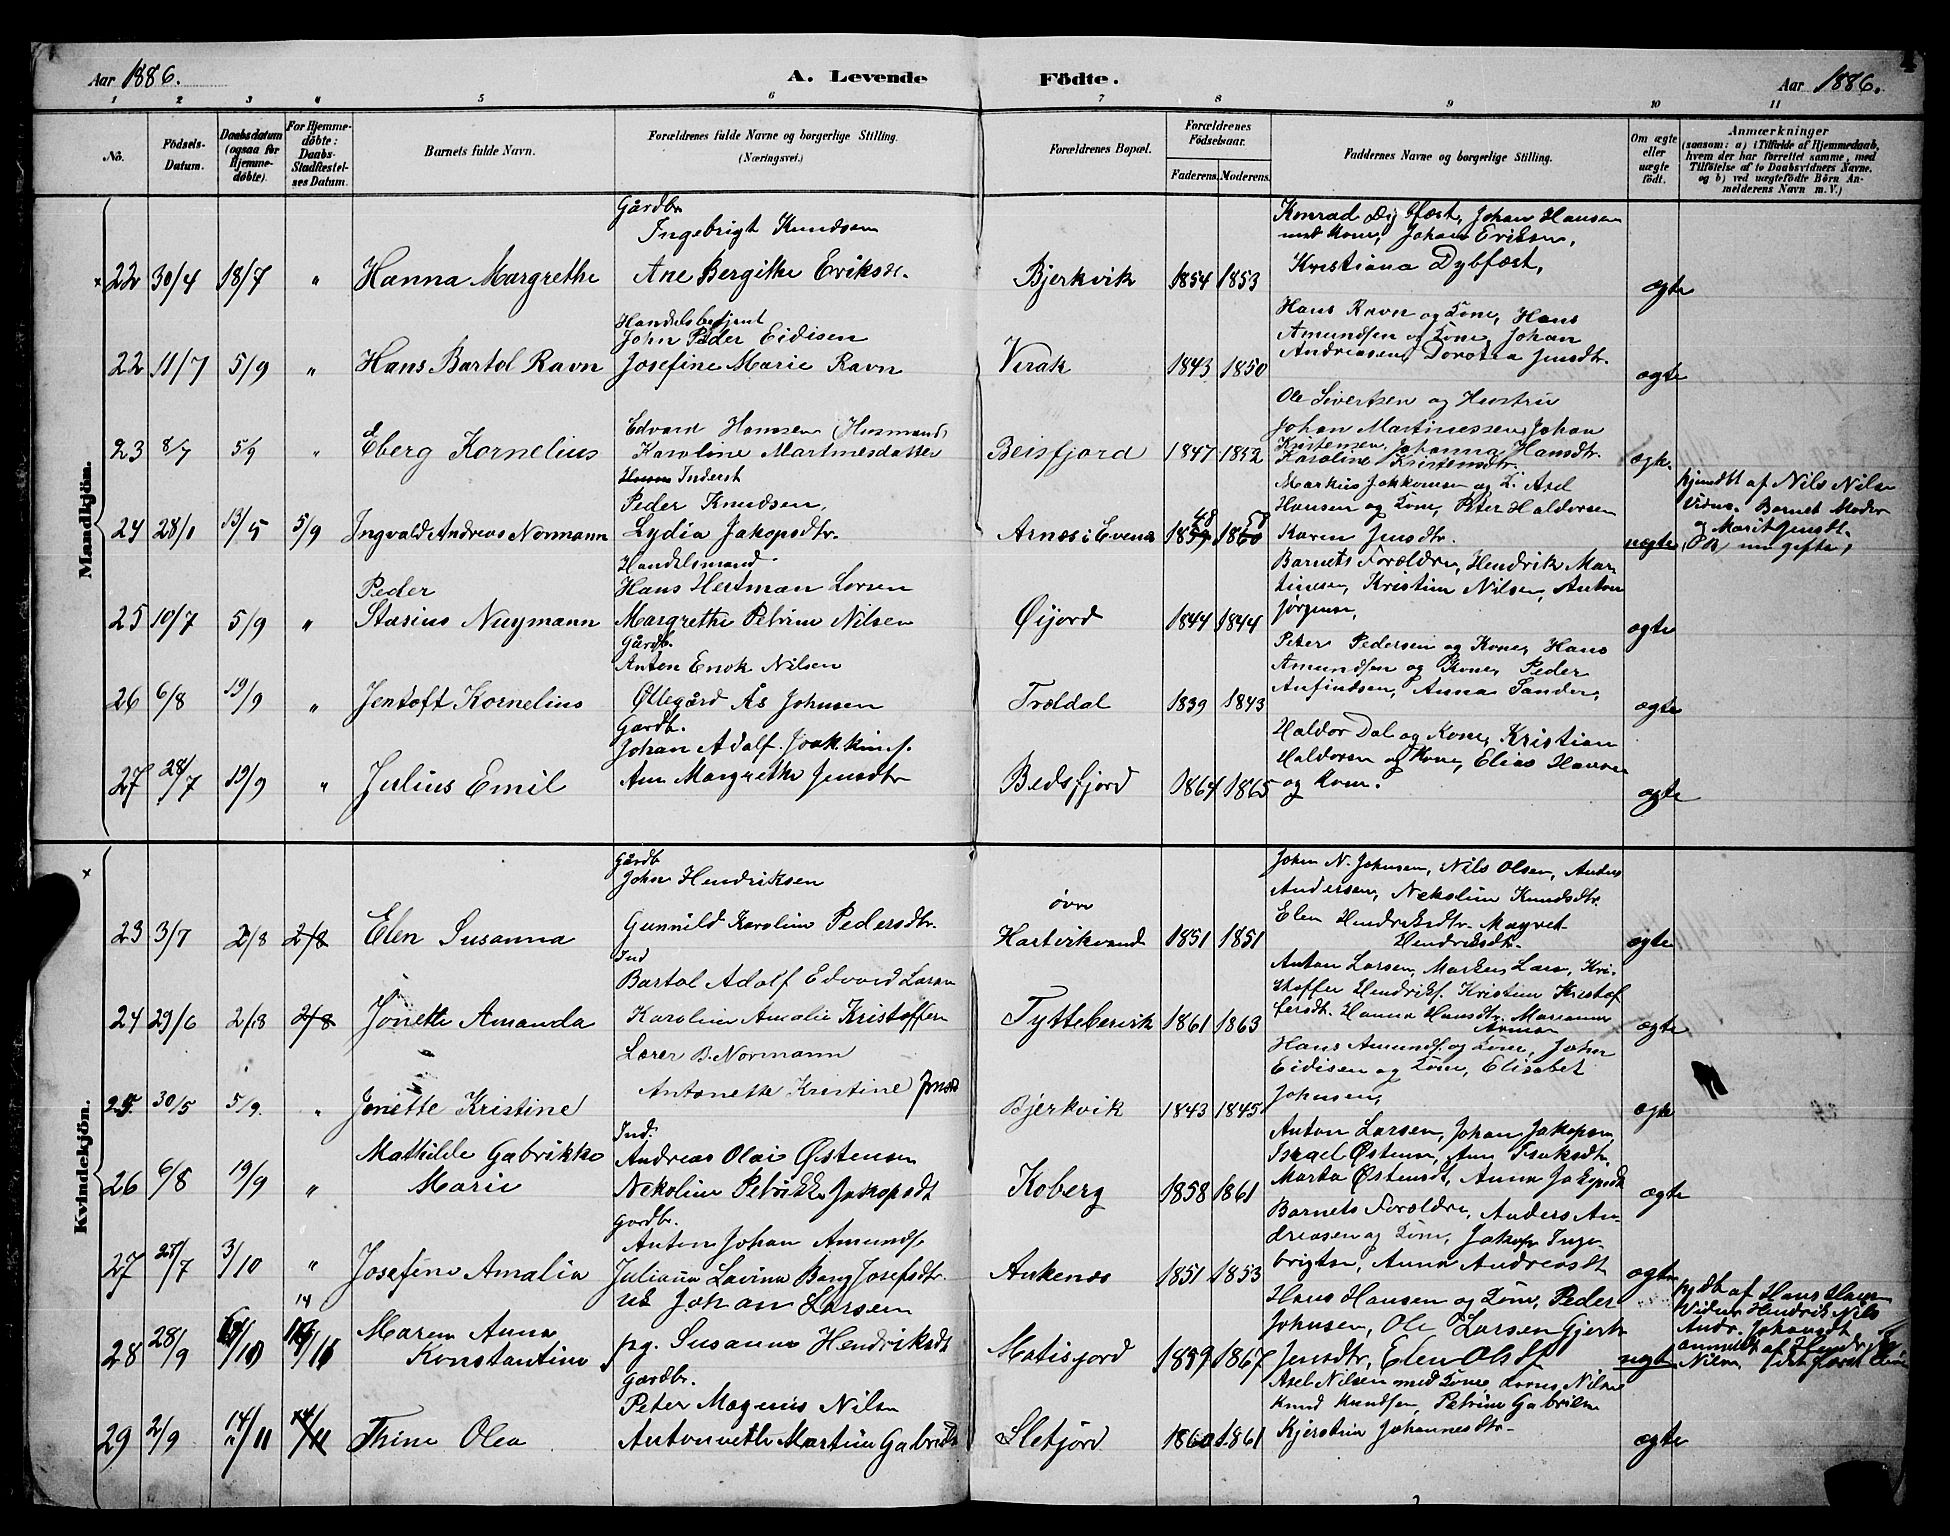 Aar 1886. A. Levende Födte. Aar 1886.
1 2 3 4 5 6 7 8 9 10 11
No. Födsels-Datum. Daabsdatum (ogsaa for Hjemme-döbte). For Hjemme-döbte: Daabs-Stadfæstel-ses Datum. Barnets fulde Navn. Forældrenes fulde Navne og borgerlige Stilling. (Næringsvei.) Forældrenes Bopæl. Forældrenes Födselsaar. Faderens. Moderens. Faddernes Navne og borgerlige Stilling. Om ægte eller uægte födt. Anmærkninger (saasom: a) i Tilfælde af Hjemmedaab, hvem der har forrettet samme, med Tilföielse af to Daabsvidners Navne, og b) ved uægtefödte Börn An-melderens Navn m. V.)
Mandkjön.
Gårdbr. Konrad Dybfæst, Johan Hansen
Ingebrigt Knudsen med Kone, Johan Eriksen,
22 30/4 18/7 " Hanna Margrethe Ane Bergithe Eriksdr. Bjerkvik 1854 1853 Kristiana Dybfæst, ægte
Handelsbetjent Hans Ravn og Kone, Hans
John Peder Eidisen Amundsen og Kone, Johan
22 11/7 5/9 " Hans Bartol Ravn Josefine Marie Ravn Virak 1843 1850 Andreasen, Dorotea Jensdtr. ægte
Ole Sivertsen og Hustru
Edvard Hansen (Husmand) Johan Martinessen, Johan
23 8/7 5/9 " Eberg Kornelius Karoline Martinesdatter Beisfjord 1847 1852 Kristensen, Johanna Hansdtr. ægte
Karoline Kristensdtr.
Inderst Markus Jakkomsen og K. Axel
Peder Knudsen, Hansen og Kone, Peter Haldorsen
24 28/1 13/5 5/9 Ingvald Andreas Normann Lydia Jakopsdtr. Arnæs i Evenes 1859 1860 Karen Jensdtr. uægte
Hjemdbt af Nils Nilsen
Vidner. Barnets Moder
og Marit Jensdt.
ugifte,
Handelsmand Barnets Forældre, Hendrik Mar-
Peder Hans Hertman Larsen tinsen, Kristian Nilsen, Anton
25 10/7 5/9 " Stasius Nuymann Margrethe Petrine Nilsen Øijord 1844 1844 Jørgensen, ægte
Gårdb. Peter Pedersen og Kone, Hans
Anton Enok Nilsen Amundsen og Kone, Peder
26 6/8 19/9 " Jentoft Kornelius Øllegård Ås Johnsen Trældal 1839 1843 Anfindsen, Anna Sander, ægte
Gårdb. Haldor Dal og Kone, Kristian
Johan Adolf Joakkims. Haldorsen og Kone, Elias
27 28/7 19/9 " Julius Emil Ane Margrethe Jensdtr Beisfjord 1864 1865 og Kone. ægte
Kvindekjön.
Gårdb John N. Johnsen, Nils Olsen, Anders
John Hendriksen Andersen, Nekoline Knudsdtr.
23 3/7 2/8 2/8 Elen Susanna Gunnild Karoline Pedersdtr. øvre Hartvikvand 1851 1851 Elen Hendriksdtr. Magret Hendriksdtr. ægte
Ind Anton Larsen, Markus Lars, Kri-
Bartol Adolf Edvard Larsen stoffer Hendriks. Kristine Kristof
24 29/6 2/8 2/8 Jonette Amanda Karoline Amalie Kristoffers Tyttebervik 1861 1863 fersdt. Hanna Hansdtr. Marianne ægte
Lærer B. Normann Hans Amunds. og Kone, John
Eidisen og Kone, Elisabet
25. 30/5 5/9. " Jonette Kristine Antonette Kristine Jensd Bjerkvik 1843 1845 Johnsen, ægte
Ind. Anton Larsen, Johan Jakopsen
Mathilde Gabrikke Andreas Olai Østensen Israel Østensen, Ane Isaksdtr.
26 6/8 19/9 " Marie Nekoline Petrikke Jakopsdt Koberg 1858 1861 Marta Østensdt, Anna Jakopsdt ægte
Gårdbr. Barnets Forældre, Anders An-
Anton Johan Amunds. dreasen og Kone, Jakop Inge-
27 28/7 3/10 " Josefine Amalia Juliana Lavina Bang Josefsdtr. Ankenæs 1851 1853 brigtsen, Anna Andreasdt ægte
Johan Larsen Hans Hansen og Kone, Peder
Maren Anna Johnsen, Ole Larsen
28 28/9 Konstantine pg. Susanna Hendriksdt Matisjord 1859 1867 Jensdtr, Elen Olsdt uægte
Hjdbt af Hans
Vidner Hendrik Nils
Andr. Johansdt
anmeldt af Hendrik
Nilsen
Gårdbr. Axel Nilsen med Kone, Nilsen
Peter Magnus Nilsen Knud Knudsen, Petrine Gabrielsen
29 2/9 14/11 14/11 Trine Olea Antonnette Martine Gabrielsd Sletjord 1860 1861 Kjerstine Johannesdtr. ægte